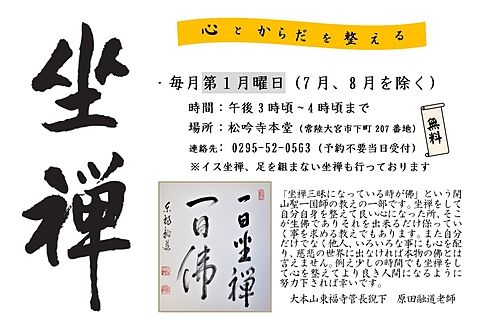 坐禅
心とからだを整える
・毎月第1月曜日（7月、8月を除く）
時間：午後3時頃～4時頃まで
場所：松吟寺本堂（常陸大宮市下町207番地）
連絡先：0295-52-0563（予約不要当日受付）
※イス坐禅、足を組まない坐禅も行っております
無料
一日坐禅
一日佛
「坐禅三昧になっている時が佛」という開
山聖一国師の教えの一部です。坐禅をして
自分自身を整えて良い心になった所、そこ
が生佛でありそれを出来るだけ保ってい
く事を求める教えでもあります。また自分
だけでなく他人、いろいろな事にも心を配
り、慈悲の世界に出なければ本物の佛とは
言えません。例え少しの時間でも坐禅をし
て心を整えてより良き人間になるように
努力下されば幸いです。
大本山東福寺管長猊下　原田融道老師